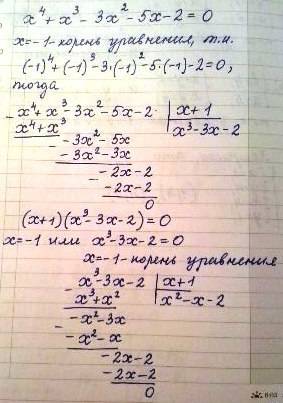 x⁴ + x³ - 3x² - 5x - 2 = 0
x=-1 - корень уравнения, т.к.
(-1)⁴ + (-1)³ - 3·(-1)² - 5·(-1) - 2 = 0,
тогда
- x⁴ + x³ - 3x² - 5x - 2 | x + 1
x⁴ + x³ | x³ - 3x - 2
- - 3x² - 5x
- 3x² - 3x
- - 2x - 2
- 2x - 2
0
(x+1)(x³ - 3x - 2) = 0
x=-1 или x³ - 3x - 2 = 0
x=-1 - корень уравнения
- x³ - 3x - 2 | x + 1
x³ + x² | x² - x - 2
- - x² - 3x
- x² - x
- - 2x - 2
- 2x - 2
0